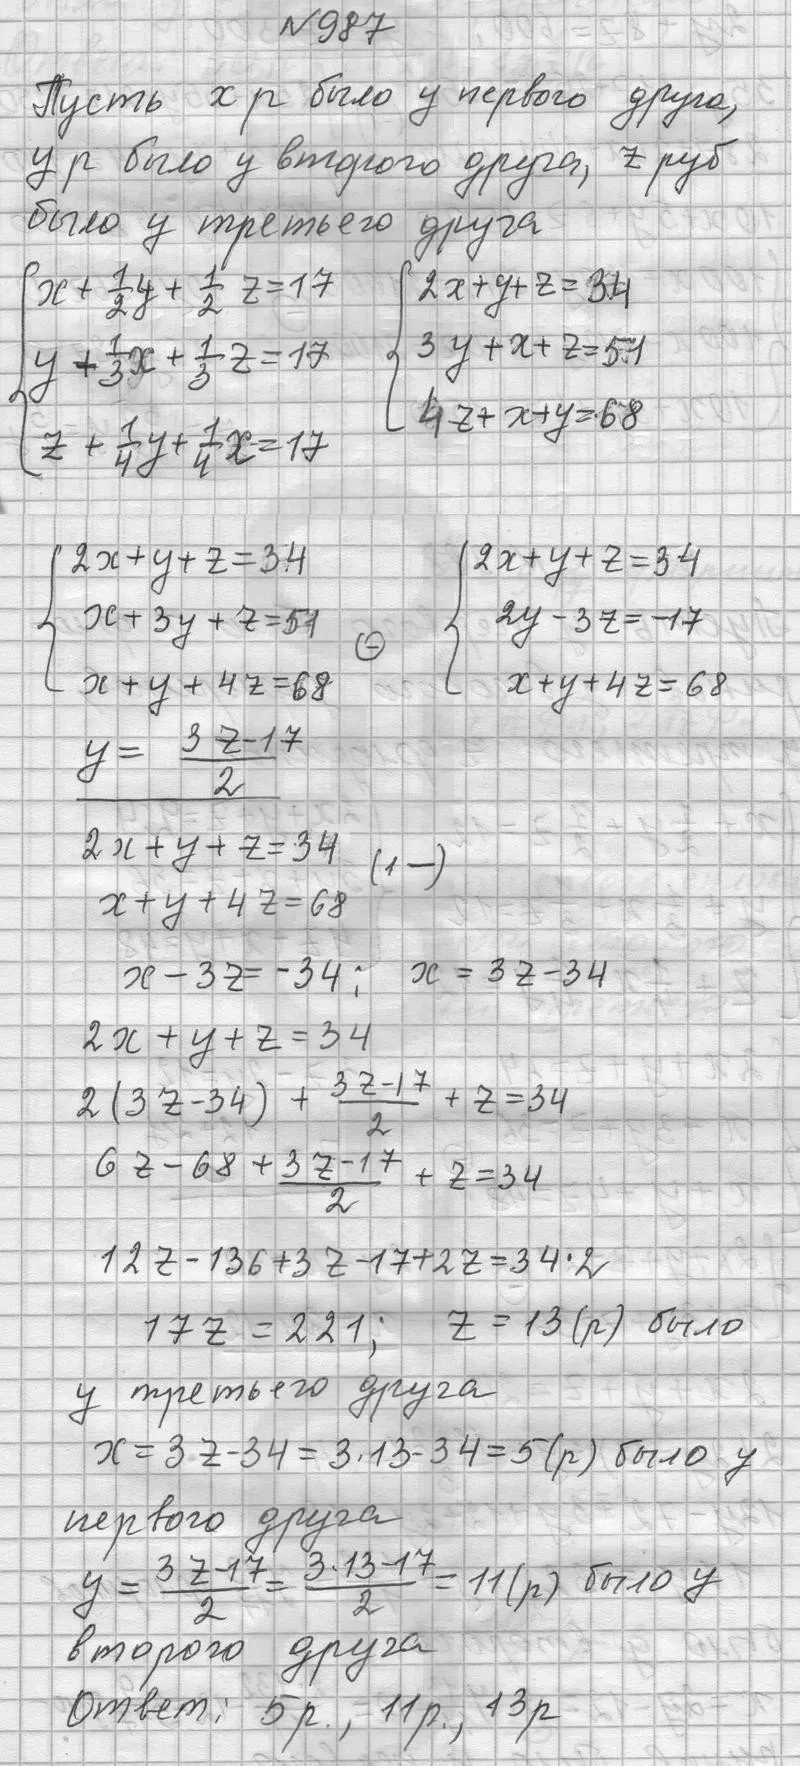 №987
Пусть x р было у первого друга,
y р было у второго друга, z руб
было у третьего друга
x + 1/2 y + 1/2 z = 17
2x+y+z=34
y + 1/3 x + 1/3 z = 17
3y+x+z=51
z + 1/4 y + 1/4 x = 17
4z+x+y=68
2x+y+z=34
2x+y+z=34
x+3y+z=51
2y-3z=-17
⊖
x+y+4z=68
x+y+4z=68
y = (3z-17)/2
2x+y+z=34
(1-)
x+y+4z=68
x-3z=-34; x=3z-34
2x+y+z=34
2(3z-34) + (3z-17)/2 + z=34
6z-68+(3z-17)/2 + z=34
12z-136+3z-17+2z=34·2
17z=221; z=13(р) было
у третьего друга
x=3z-34=3·13-34=5(р) было у
первого друга
y = (3z-17)/2 = (3·13-17)/2 = 11(р) было у
второго друга
Ответ: 5р., 11р., 13р